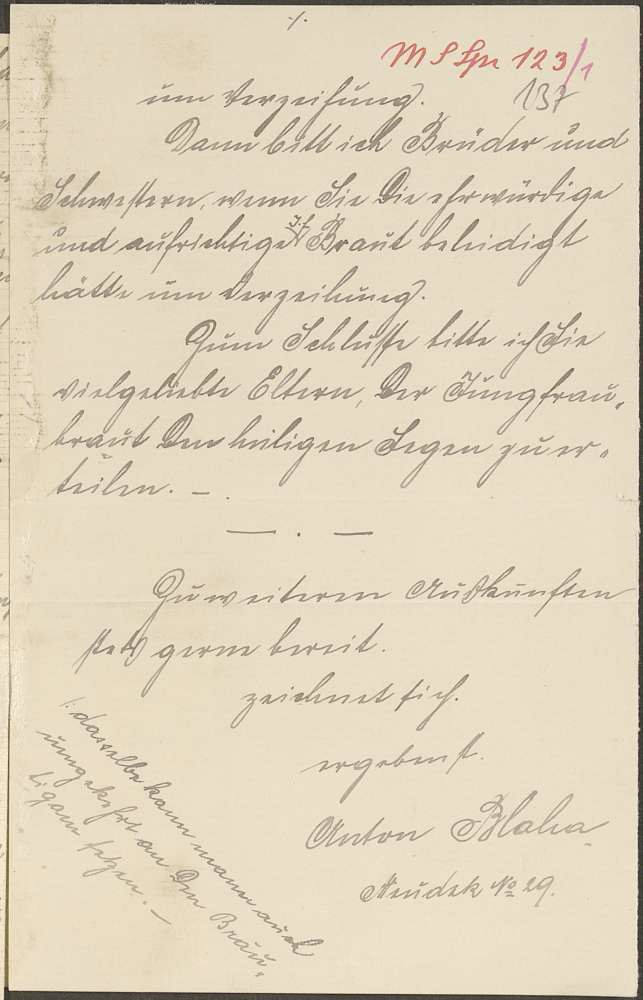 ./.
M S Spr 123/1
137
um Verzeihung.
Dann bitt ich Brüder und
Schwestern, wenn Sie die ehrwürdige
und aufrichtige Jf. Braut beleidigt
hätte um Verzeihung.
Zum Schlusse bitte ich Sie
vielgeliebte Eltern, der Jungfrau-
braut den heiligen Segen zu er-
teilen. —
— . —
Zu weiteren Auskünften
stets gerne bereit.
zeichnet sich.
ergebenst.
Anton Blaha
Neudek No 29.
/: dasselbe kann man auch
umgekehrt an den Bräu-
tigam setzen. —